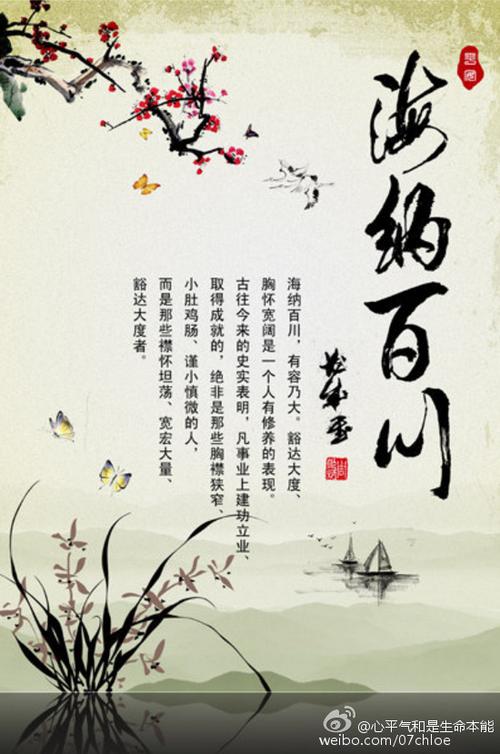 海纳百川
海纳百川，有容乃大。豁达大度、
胸怀宽阔是一个人有修养的表现。
古往今来的史实表明，凡事业上建功立业、
取得成就的，绝非是那些胸襟狭窄、
小肚鸡肠、谨小慎微的人，
而是那些襟怀坦荡、宽宏大量、
豁达大度者。
@心平气和是生命本能
weibo.com/07chloe